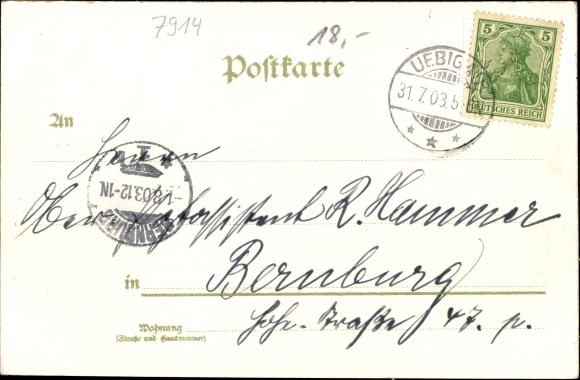 7914
18,-
Postkarte
UEBIG
31.7.03.5-
5 5
DEUTSCHES REICH
An
Herrn
-1.8.03.12-1N
BERNBURG
Ober-postassistent R. Hammer
in Bernburg
Wohnung
(Straße und Hausnummer)
Hohe-Straße 47. p.